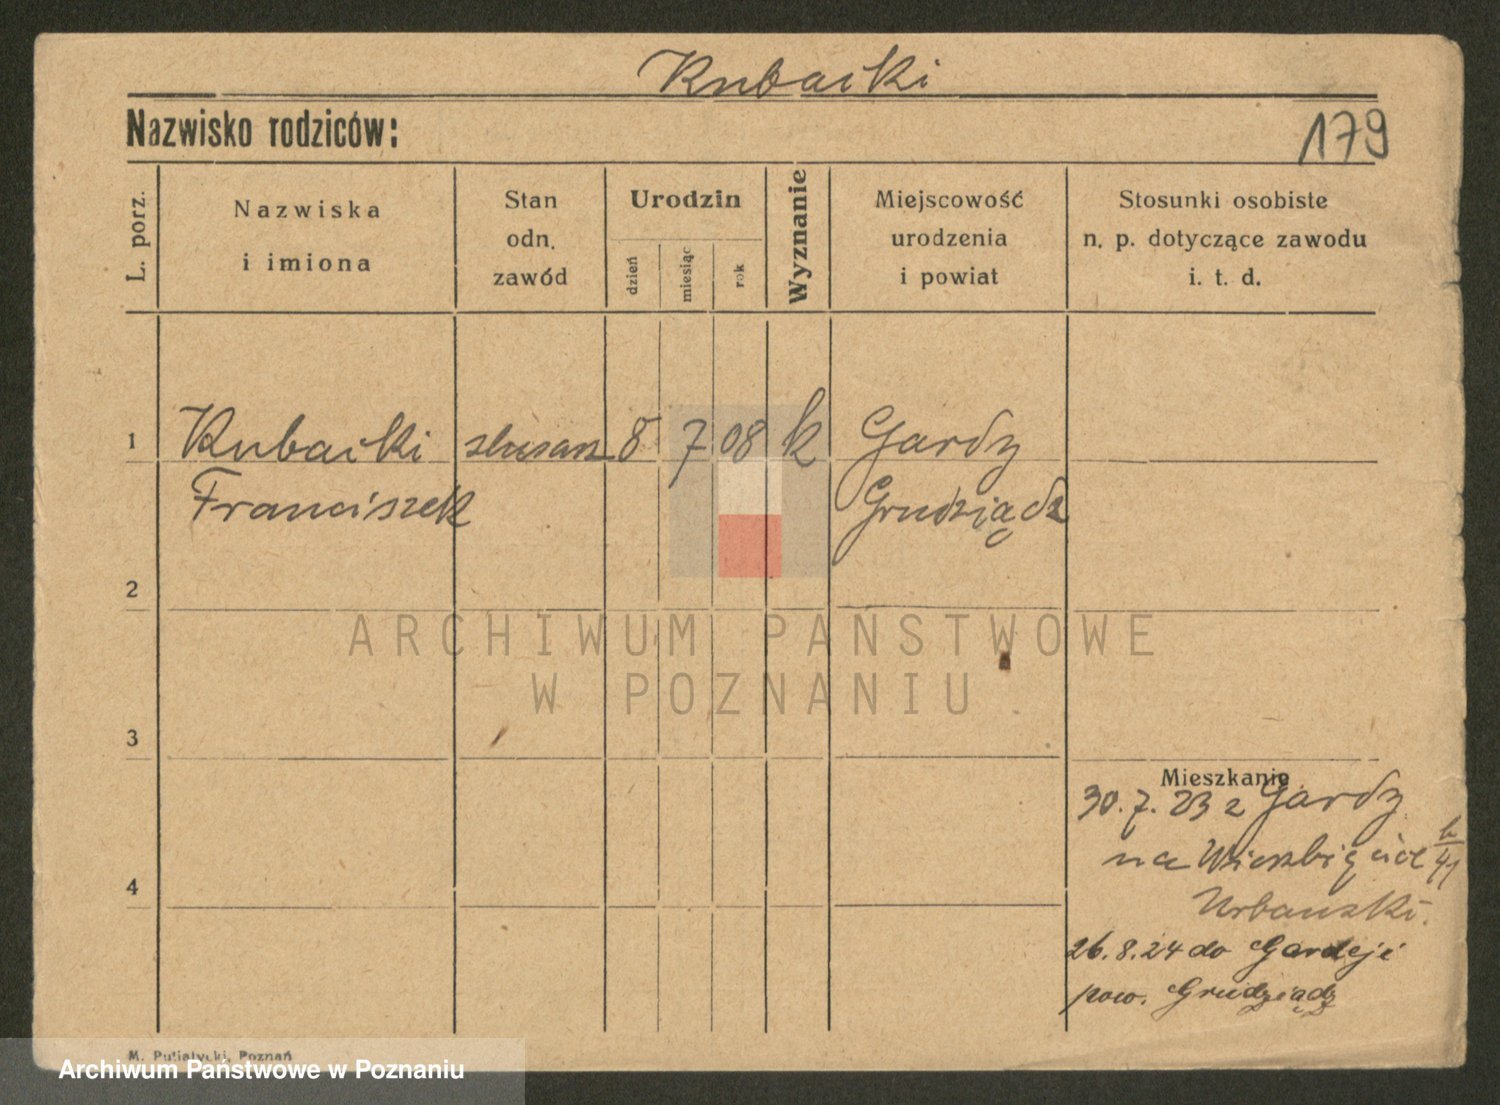 Kubacki
Nazwisko rodziców:
179
L. porz.
Nazwiska
i imiona
Stan
odn.
zawód
Urodzin
dzień
miesiąc
rok
Wyznanie
Miejscowość
urodzenia
i powiat
Stosunki osobiste
n. p. dotyczące zawodu
i. t. d.
1
Kubacki
Franciszek
8
7
08
k
Gardz
Grudziądz
2
3
4
ARCHIWUM PAŃSTWOWE
W POZNANIU
Mieszkanie
30.7.23 z Gardz
na
Urbański.
26.8.24 do Gardeji
pow. Grudziądz
M. Poznań
Archiwum Państwowe w Poznaniu